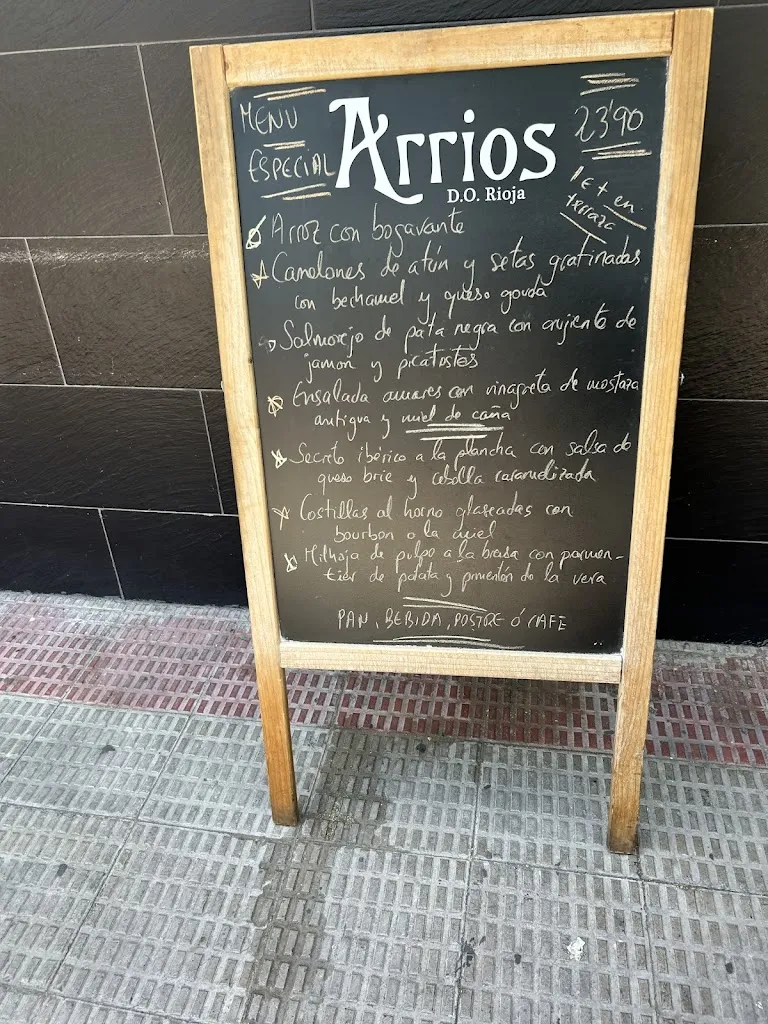 MENU
ESPECIAL
Arrios
D.O. Rioja
23'90
1€ + en
terraza
Arroz con bogavante
Canelones de atún y setas gratinadas
con bechamel y queso gouda
Salmorejo de pata negra con crujiente de
jamon y picatostes
Ensalada con vinagreta de mostaza
antigua y miel de caña
Secreto ibérico a la plancha con salsa de
queso brie y cebolla caramelizada
Costillas al horno glaseadas con
bourbon o la miel
Milhoja de pulpo a la brasa con parmen-
tier de patata y pimentón de la vera
PAN, BEBIDA, POSTRE Ó CAFE